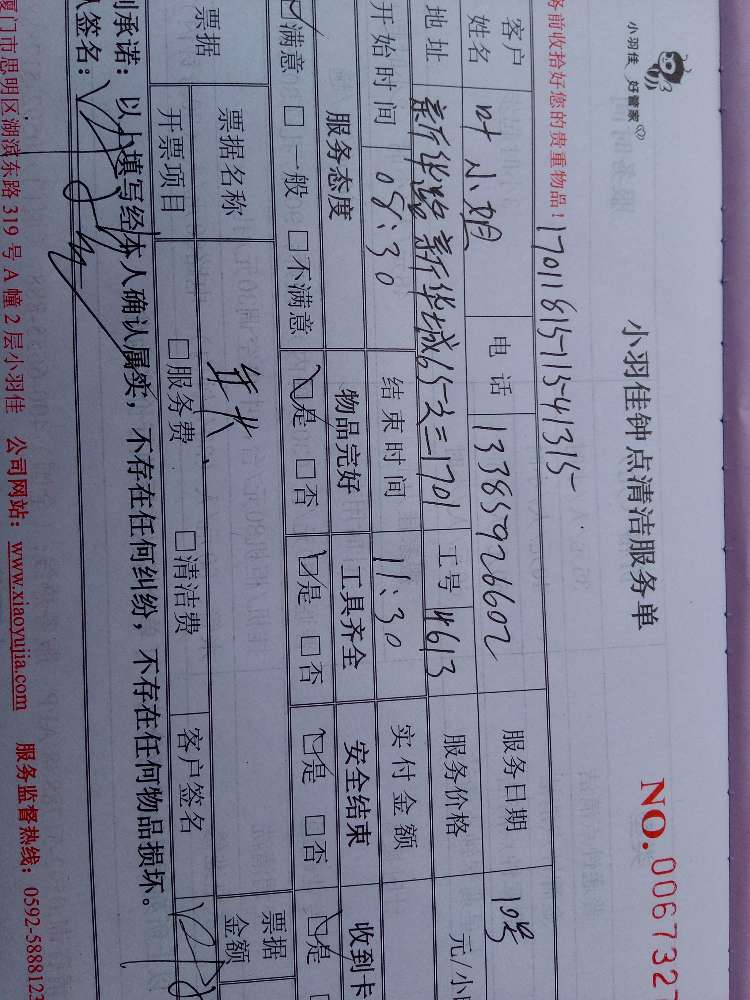 小羽佳 好管家
小羽佳钟点清洁服务单
NO. 0067327
务前收拾好您的贵重物品！ 1701181571541315
客户姓名 叶小姐 电话 13385926602 服务日期 10号
地址 新华路新华城 1701 工号 4613 服务价格 元/小
开始时间 09:30 结束时间 11:30 实付金额
服务态度 物品完好 工具齐全 安全结束 收到卡
满意 □一般 □不满意 □是 □否 □是 □否 □是 □否 □是
票据 票据名称 票据金额
开票项目 □服务费 □清洁费 客户签名
承诺：以上填写经本人确认属实，不存在任何纠纷，不存在任何物品损坏。
签名：
厦门市思明区湖滨东路 319 号 A 幢 2 层小羽佳 公司网站：www.xiaoyujia.com 服务监督热线：0592-5888123